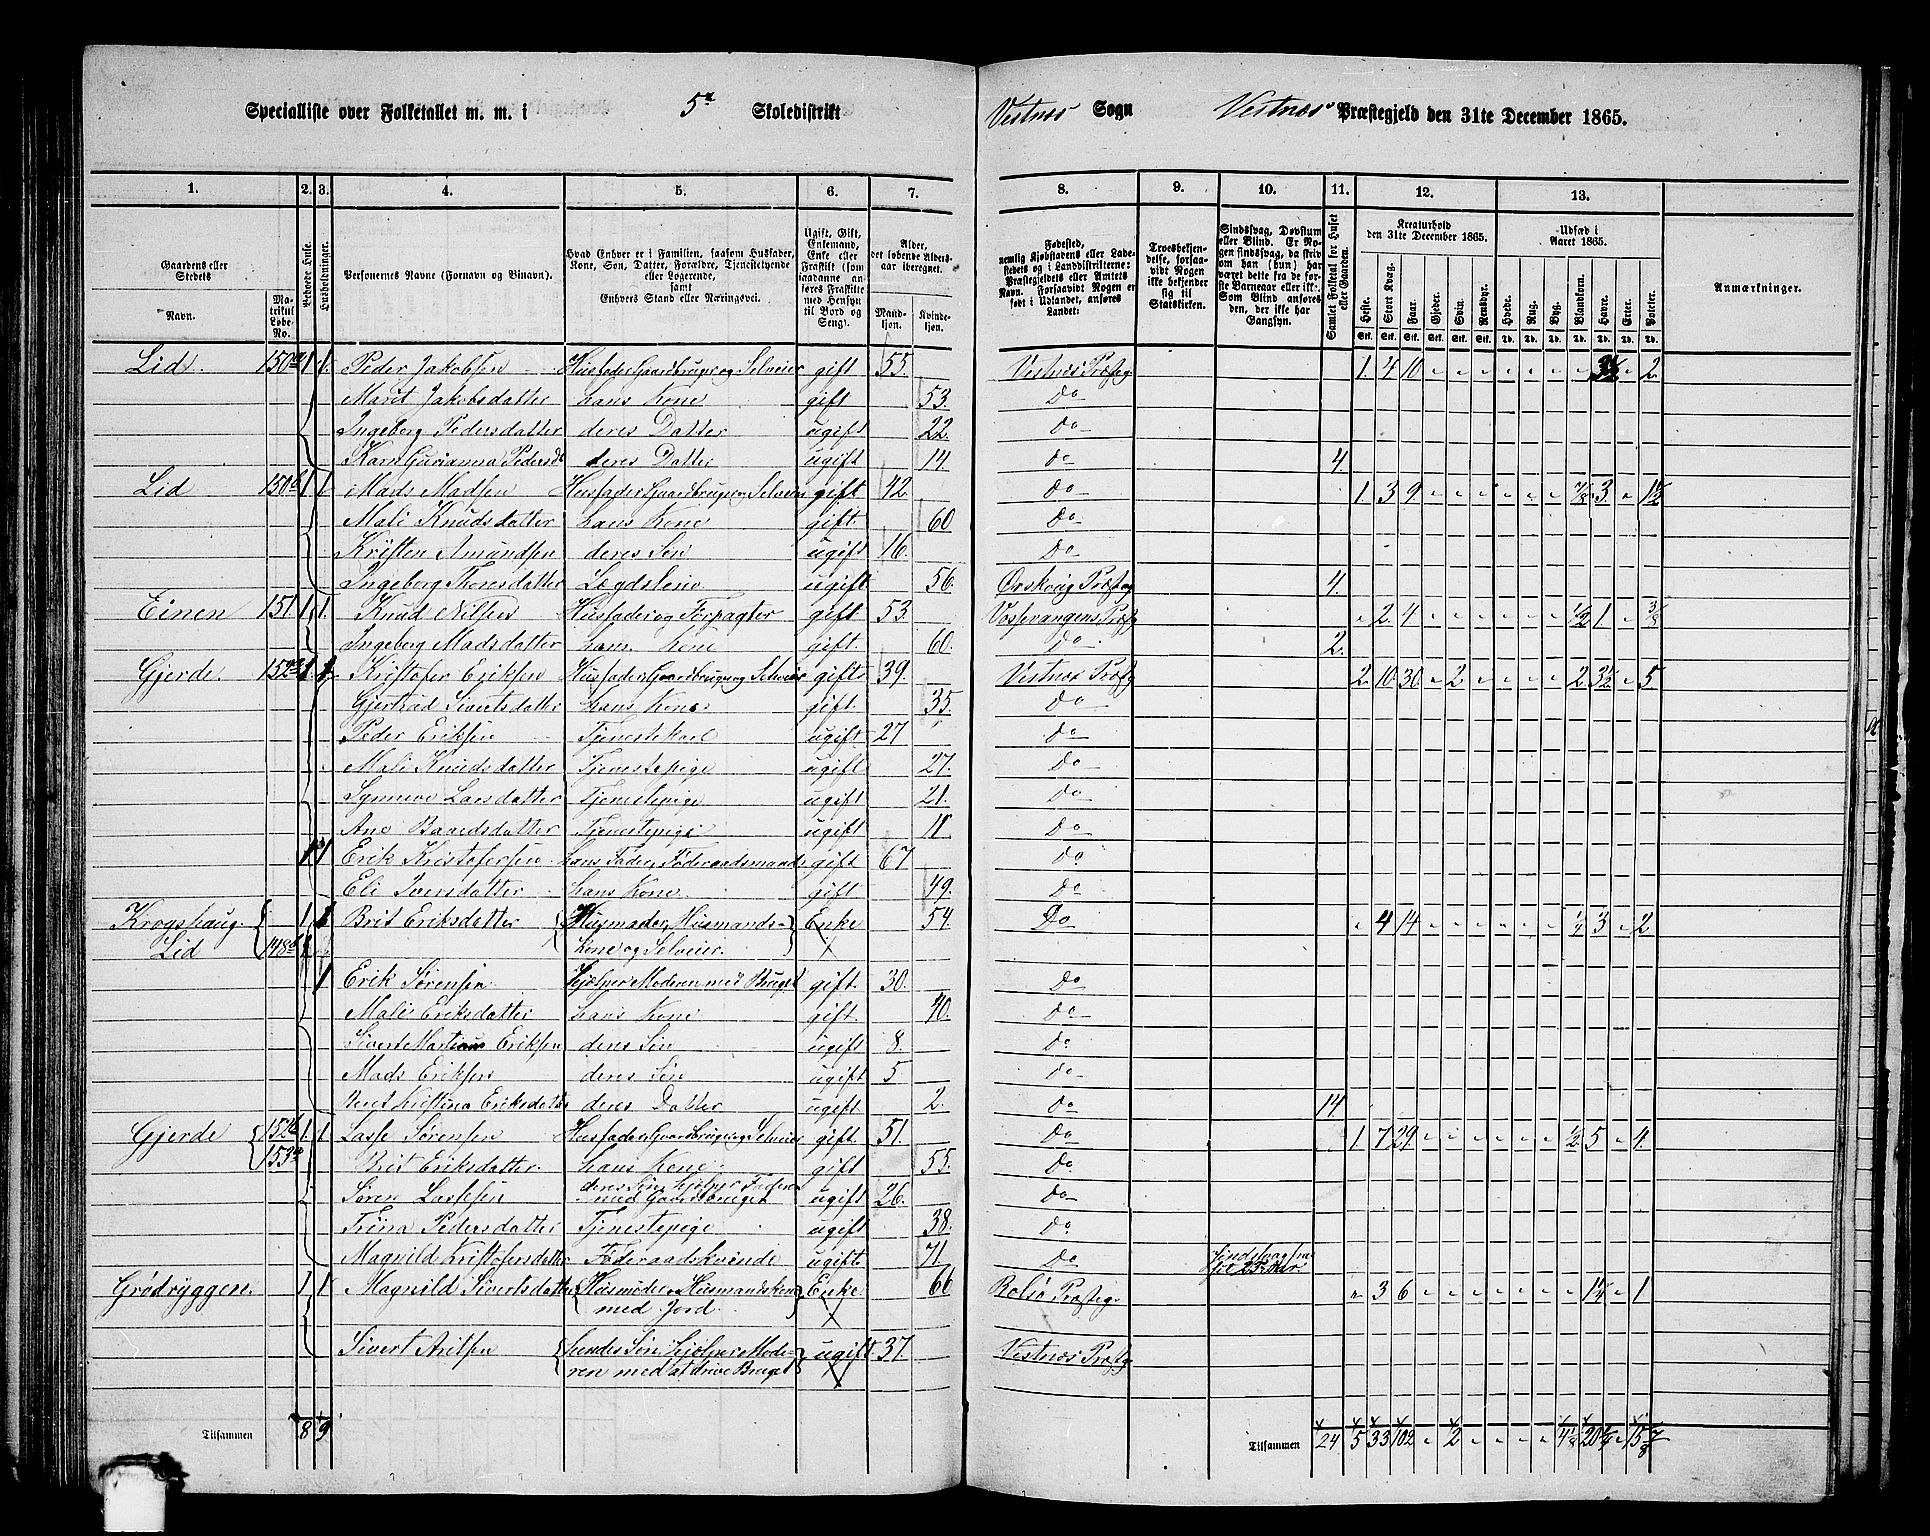 Specialliste over Folketallet m. m. i 5te Skoledistrikt Vestnæs Sogn Vestnæs Præstegjeld den 31te December 1865.
1. 2. 3. 4. 5. 6. 7. 8. 9. 10. 11. 12. 13.
Gaardens eller Stedets Navn. Matrikul Løbe-No. Beboede Huse. Husholdninger. Personernes Navne (Fornavn og Binavn). Hvad Enhver er i Familien, saasom Husfader, Kone, Søn, Datter, Forældre, Tjenestetyende eller Logerende, samt Enhvers Stand eller Næringsvei. Alder, det løbende Aldersaar iberegnet. Mandkjøn. Kvindekjøn.
Troesbekjendelse, forsaavidt Nogen ikke bekjender sig til Statskirken. Samlet Folketal for Huset eller Gaarden. Kreaturhold den 31te December 1865. Udsæd i Aaret 1865. Anmærkninger.
Heste. Stort Kvæg. Faar. Gjeder. Svin. Rensdyr. Hvede. Rug. Byg. Blandkorn. Havre. Erter. Poteter.
Lid. 150a 1 1 Peder Jakobsen Husfader Gaardbruger og Selveier gift 55. Vestnæs Præsteg 1. 4 10 2
Marit Jakobsdatter hans Kone gift 53. Do
Ingeborg Pedersdatter deres Datter ugift 22. Do
Karn Gurianna Pedersdt deres Datter ugift 14. Do 4.
Lid 150b 1 1 Mads Madsen Husfader Gaardbruger og Selveier gift 42. Do 1. 3 9. 7/8 3. 1½
Mali Knudsdatter hans Kone gift. 60. Do
Kristen Amundsen deres Søn ugift 16. Do
Ingeborg Thoresdatter Lægdslem ugift 56. Ørskoug Præsteg 4.
Einen 151. 1 1. Knud Nilsen Husfader og Forpagter gift 53. Vossevangens Præstg 2. 4 ½ 1 3/8
Ingeborg Madsdatter hans Kone gift. 60. Do 2.
Gjerde. 152a 1 1 Kristofer Eriksen Husfader, Gaardbruger og Selveier gift 39. Vestnæs Præstg 2 10 30 2 2 3½ 5
Gjertrud Sivertsdatter hans Kone gift. 35. Do
Peder Eriksen Tjenestekarl ugift 27 Do
Mali Knudsdatter Tjenestepige ugift 27. Do
Synneve Larsdatter Tjenestepige ugift 21. Do
Ane Baardsdatter Tjenestepige ugift Do
Erik Kristofersen hans Fader, Føderaadsmand gift 67 Do
Eli Iversdatter hans Kone gift 49. Do
Krogshaug. 1 1 Brit Eriksdatter Husmoder, Husmands- Enke 54. Do 4 14 ¼ 3 2
Lid 148 Kone og Selveier.
1 Erik Sørensen Hjælper Moderen med Bruget gift. 30. Do
Mali Eriksdatter hans Kone gift. 40. Do
Sivert Martinus Eriksen deres Søn ugift 8. Do
Mads Eriksen deres Søn ugift 5 Do
Kristina Eriksdatter deres Datter ugift 2. Do 14
Gjerde 152b 1. 1 Lasse Sørensen Husfader, Gaardbruger og Selveier gift. 51. Do 1 7 29. ½ 5 4.
153a Brit Eriksdatter. hans Kone gift 55. Do
deres Søn, hjælper Faderen
Søren Lassesen med Gaardbruget ugift 26. Do
Trina Pedersdatter Tjenestepige ugift 38. Do
Magnild Kristofersdatter Føderaadskvinde ugift 71 Do
Grødryggen. 1 1 Magnild Sivertsdatter Husmoder, Husmandskone Enke 66 Bolsø Præsteg. 3 6 1¼ 1
med Jord.
Sivert hendes Søn, hjælper Mode- ugift. 37. Vestnæs Præstg
ren med at drive Bruget
Tilsammen 8 9 Tilsammen 24 5 33 102 2 4⅛ 15 7/8